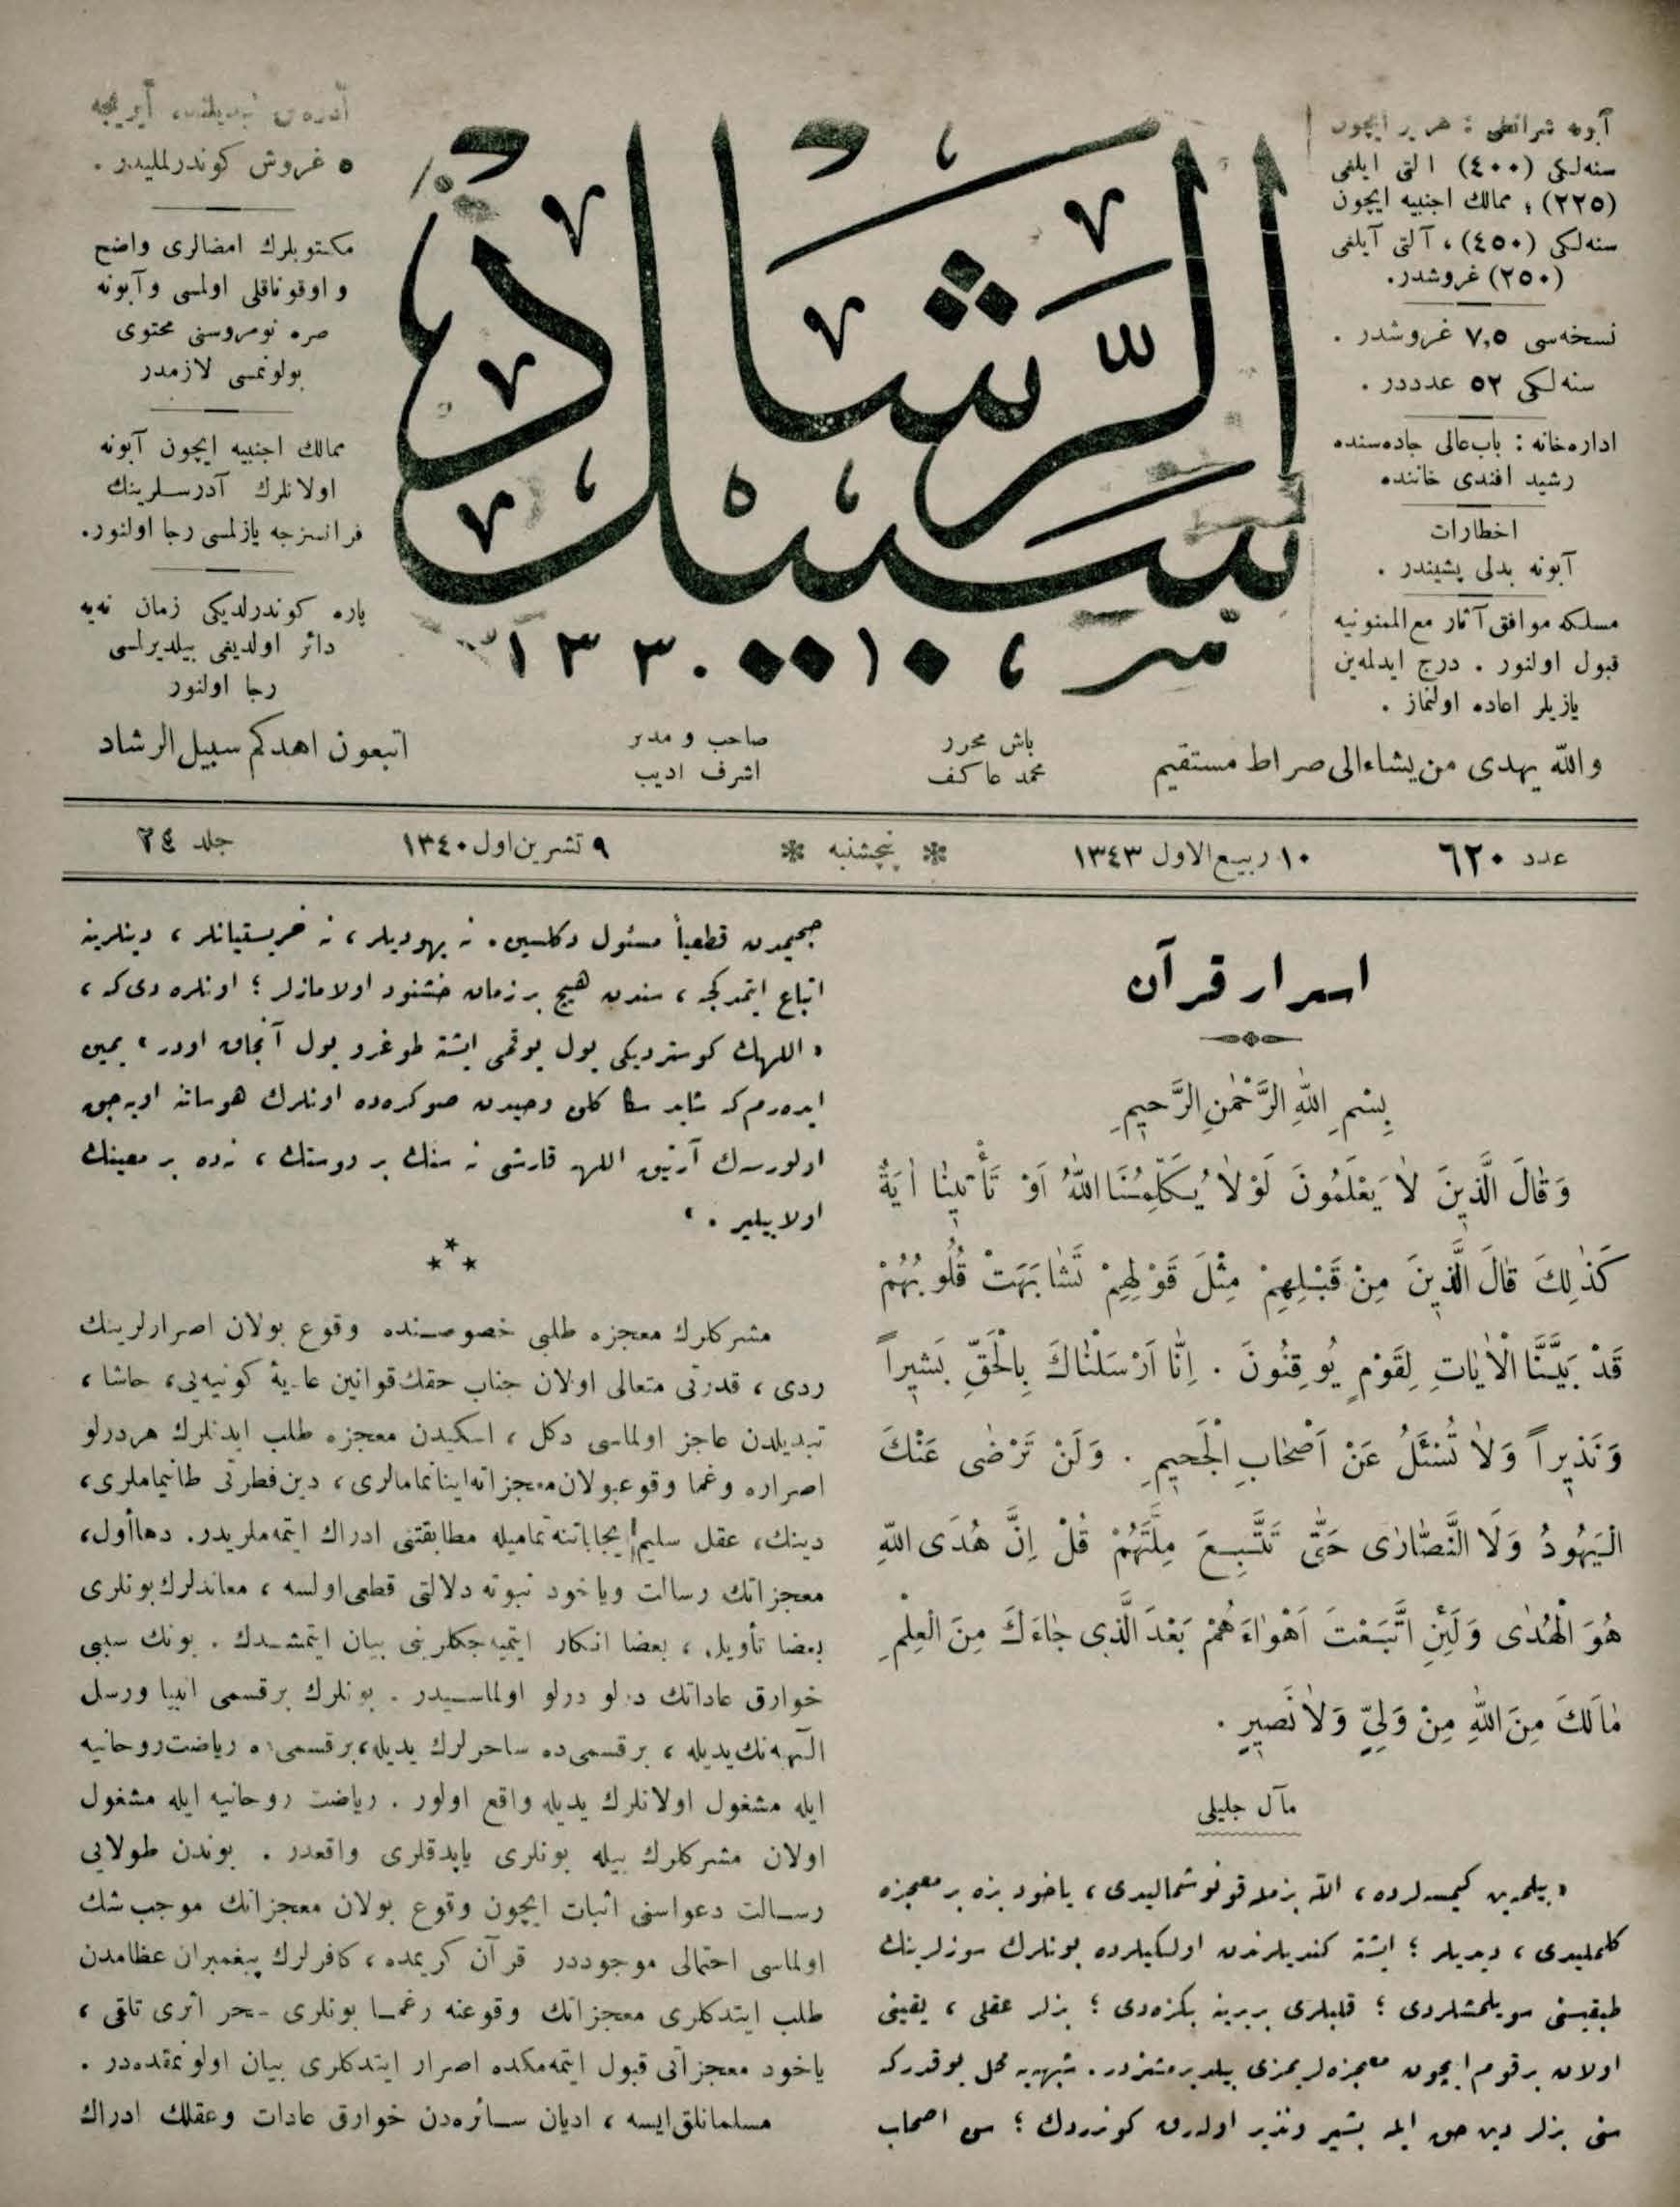 آبونه شرائطی : هر یر ایچون
سنه‌لکی (٤٠٠) التی ایلغی
(٢٢٥) ؛ ممالك اجنبیه ایچون
سنه‌لکی (٤٥٠) ، آلتی آیلغی
(٢٥٠) غروشدر.
نسخه‌سی ٧,٥ غروشدر .
سنه‌لکی ٥٢ عدددر .
اداره‌خانه : باب‌عالی جاده‌سنده
رشید افندی خاننده
اخطارات
آبونه بدلی پشیندر .
مسلکه موافق آثار مع‌الممنونیه
قبول اولنور . درج ایدلمه‌ین
یازیلر اعاده اولنماز .
سبیل الرشاد
١٣٣٠
آدره‌س تبدیلنده آیریجه
٥ غروش کوندرلملیدر .
مکتوبلرك امضالری واضح
و اوقوناقلی اولمسی وآبونه
صره نومروسنی محتوی
بولونمسی لازمدر
ممالك اجنبیه ایچون آبونه
اولانلرك آدرسلرینك
فرانسزجه یازلمسی رجا اولنور.
پاره کوندرلدیکی زمان نه‌یه
دائر اولدیغی بیلدیرلمسی
رجا اولنور
والله یهدی من یشاء الی صراط مستقیم
باش محرر
محمد عاکف
صاحب و مدیر
اشرف ادیب
اتبعون اهدکم سبیل الرشاد
عدد ٦٢٠
١٠ ربیع‌الاول ١٣٤٣
پنجشنبه
٩ تشرین‌اول ١٣٤٠
جلد ٢٤
اسرار قرآن
بِسْمِ اللهِ الرَّحْمٰنِ الرَّحِيمِ
وَقَالَ الَّذِينَ لَا يَعْلَمُونَ لَوْلَا يُكَلِّمُنَا اللهُ اَوْ تَأْتِينَا اٰيَةٌ
كَذٰلِكَ قَالَ الَّذِينَ مِنْ قَبْلِهِمْ مِثْلَ قَوْلِهِمْ تَشَابَهَتْ قُلُوبُهُمْ
قَدْ بَيَّنَّا الْاٰيَاتِ لِقَوْمٍ يُوقِنُونَ . اِنَّا اَرْسَلْنَاكَ بِالْحَقِّ بَشِيراً
وَنَذِيراً وَلَا تُسْئَلُ عَنْ اَصْحَابِ الْجَحِيمِ . وَلَنْ تَرْضٰى عَنْكَ
الْيَهُودُ وَلَا النَّصَارٰى حَتّٰى تَتَّبِعَ مِلَّتَهُمْ قُلْ اِنَّ هُدَى اللهِ
هُوَ الْهُدٰى وَلَئِنِ اتَّبَعْتَ اَهْوَاءَهُمْ بَعْدَ الَّذِى جَاءَكَ مِنَ الْعِلْمِ
مَالَكَ مِنَ اللهِ مِنْ وَلِىٍّ وَلَا نَصِيرٍ .
مآل جلیلی
« بیلمه‌ین کیمسه‌لرده ، الله بزمله قونوشمالیدی ، یاخود بزه بر معجزه
کلملیدی ، دیدیلر ؛ ایشته کندیلرندن اولکیلرده بونلرك سوزلرینك
طبقیسنی سویلمشلردی ؛ قلبلری بربرینه بکزه‌دی ؛ بزلر عقلی ، یقینی
اولان بر قوم ایچون معجزه‌لریمزی بیلدیرمشزدر. شبهه‌یه محل یوقدرکه
سنی بزلر دین حق ایله بشیر ونذیر اوله‌رق کوندردك ؛ سن اصحاب
جحیمدن قطعیاً مسئول دکلسین. نه یهودیلر ، نه خرستیانلر ، دینلرینه
اتباع ایتمدکجه ، سندن هیچ بر زمان خشنود اولامازلر ؛ اونلره دی که ،
« اللهك کوستردیکی یول یوقمی ایشته طوغرو یول آنجاق اودر » یمین
ایده‌رم که شاید سکا کلن وحیدن صوکره‌ده اونلرك هوساتنه اویه‌جق
اولورسه‌ك آرتیق اللهه قارشی نه سنك بر دوستك ، نه‌ده بر معینك
اولابیلیر . »
مشرکلرك معجزه طلبی خصوصنده وقوع بولان اصرارلرینك
ردی ، قدرتی متعالی اولان جناب حقك قوانین عادیهٔ کونیه‌یی، حاشا ،
تبدیلدن عاجز اولماسی دکل ، اسکیدن معجزه طلب ایدنلرك هردرلو
اصراره رغما وقوعبولان معجزاته اینانمامالری ، دین فطرتی طانیماملری،
دینك، عقل سلیم ایجاباتنه تمامیله مطابقتنی ادراك ایتمه‌ملریدر. دها اول،
معجزاتك رسالت ویاخود نبوته دلالتی قطعی اولسه ، معاندلرك بونلری
بعضا تأویل ، بعضا انکار ایتمیه‌جکلرینی بیان ایتمشدك . بونك سببی
خوارق عاداتك درلو درلو اولماسیدر . بونلرك برقسمی انبیا ورسل
الهیه‌نك یدیله ، برقسمی‌ده ساحرلرك یدیله، برقسمی‌ده ریاضت‌روحانیه
ایله مشغول اولانلرك یدیله واقع اولور . ریاضت روحانیه ایله مشغول
اولان مشرکلرك بیله بونلری یاپدقلری واقعدر . بوندن طولایی
رسالت دعواسنی اثبات ایچون وقوع بولان معجزاتك موجب شك
اولماسی احتمالی موجوددر قرآن کریمده ، کافرلرك پیغمبران عظامدن
طلب ایتدکلری معجزاتك وقوعنه رغما بونلری سحر اثری تلقی ،
یاخود معجزاتی قبول ایتمه‌مکده اصرار ایتدکلری بیان اولونمقده‌در .
مسلمانلق ایسه ، ادیان سائره‌دن خوارق عادات وعقلك ادراك